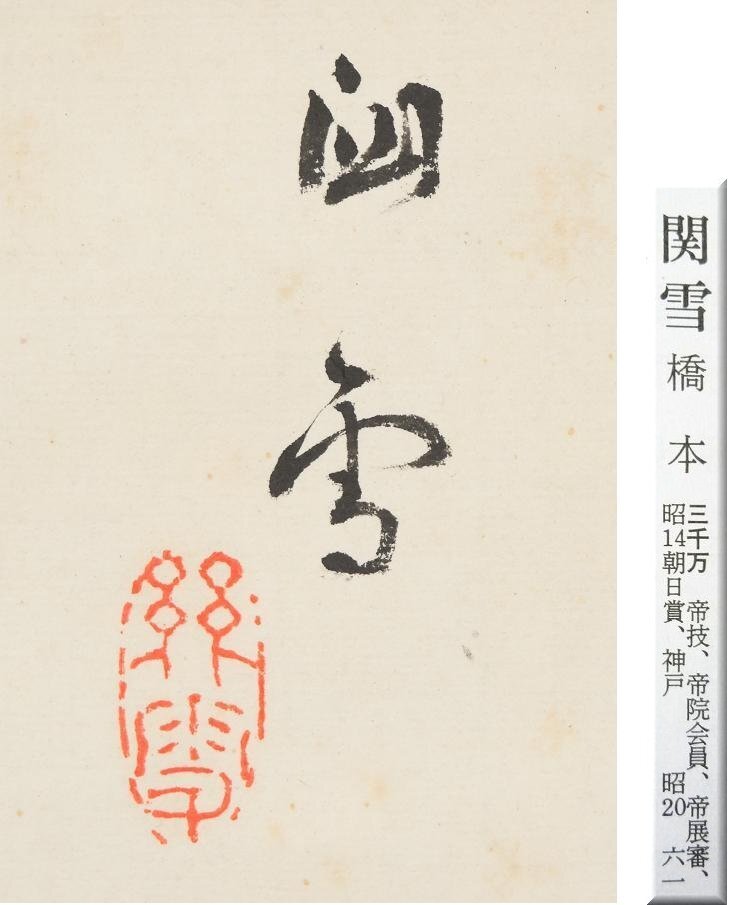 関雪 橋本
三千万 帝技、帝院会員、帝展審、
昭14朝日賞、神戸 昭20 六一
関雪